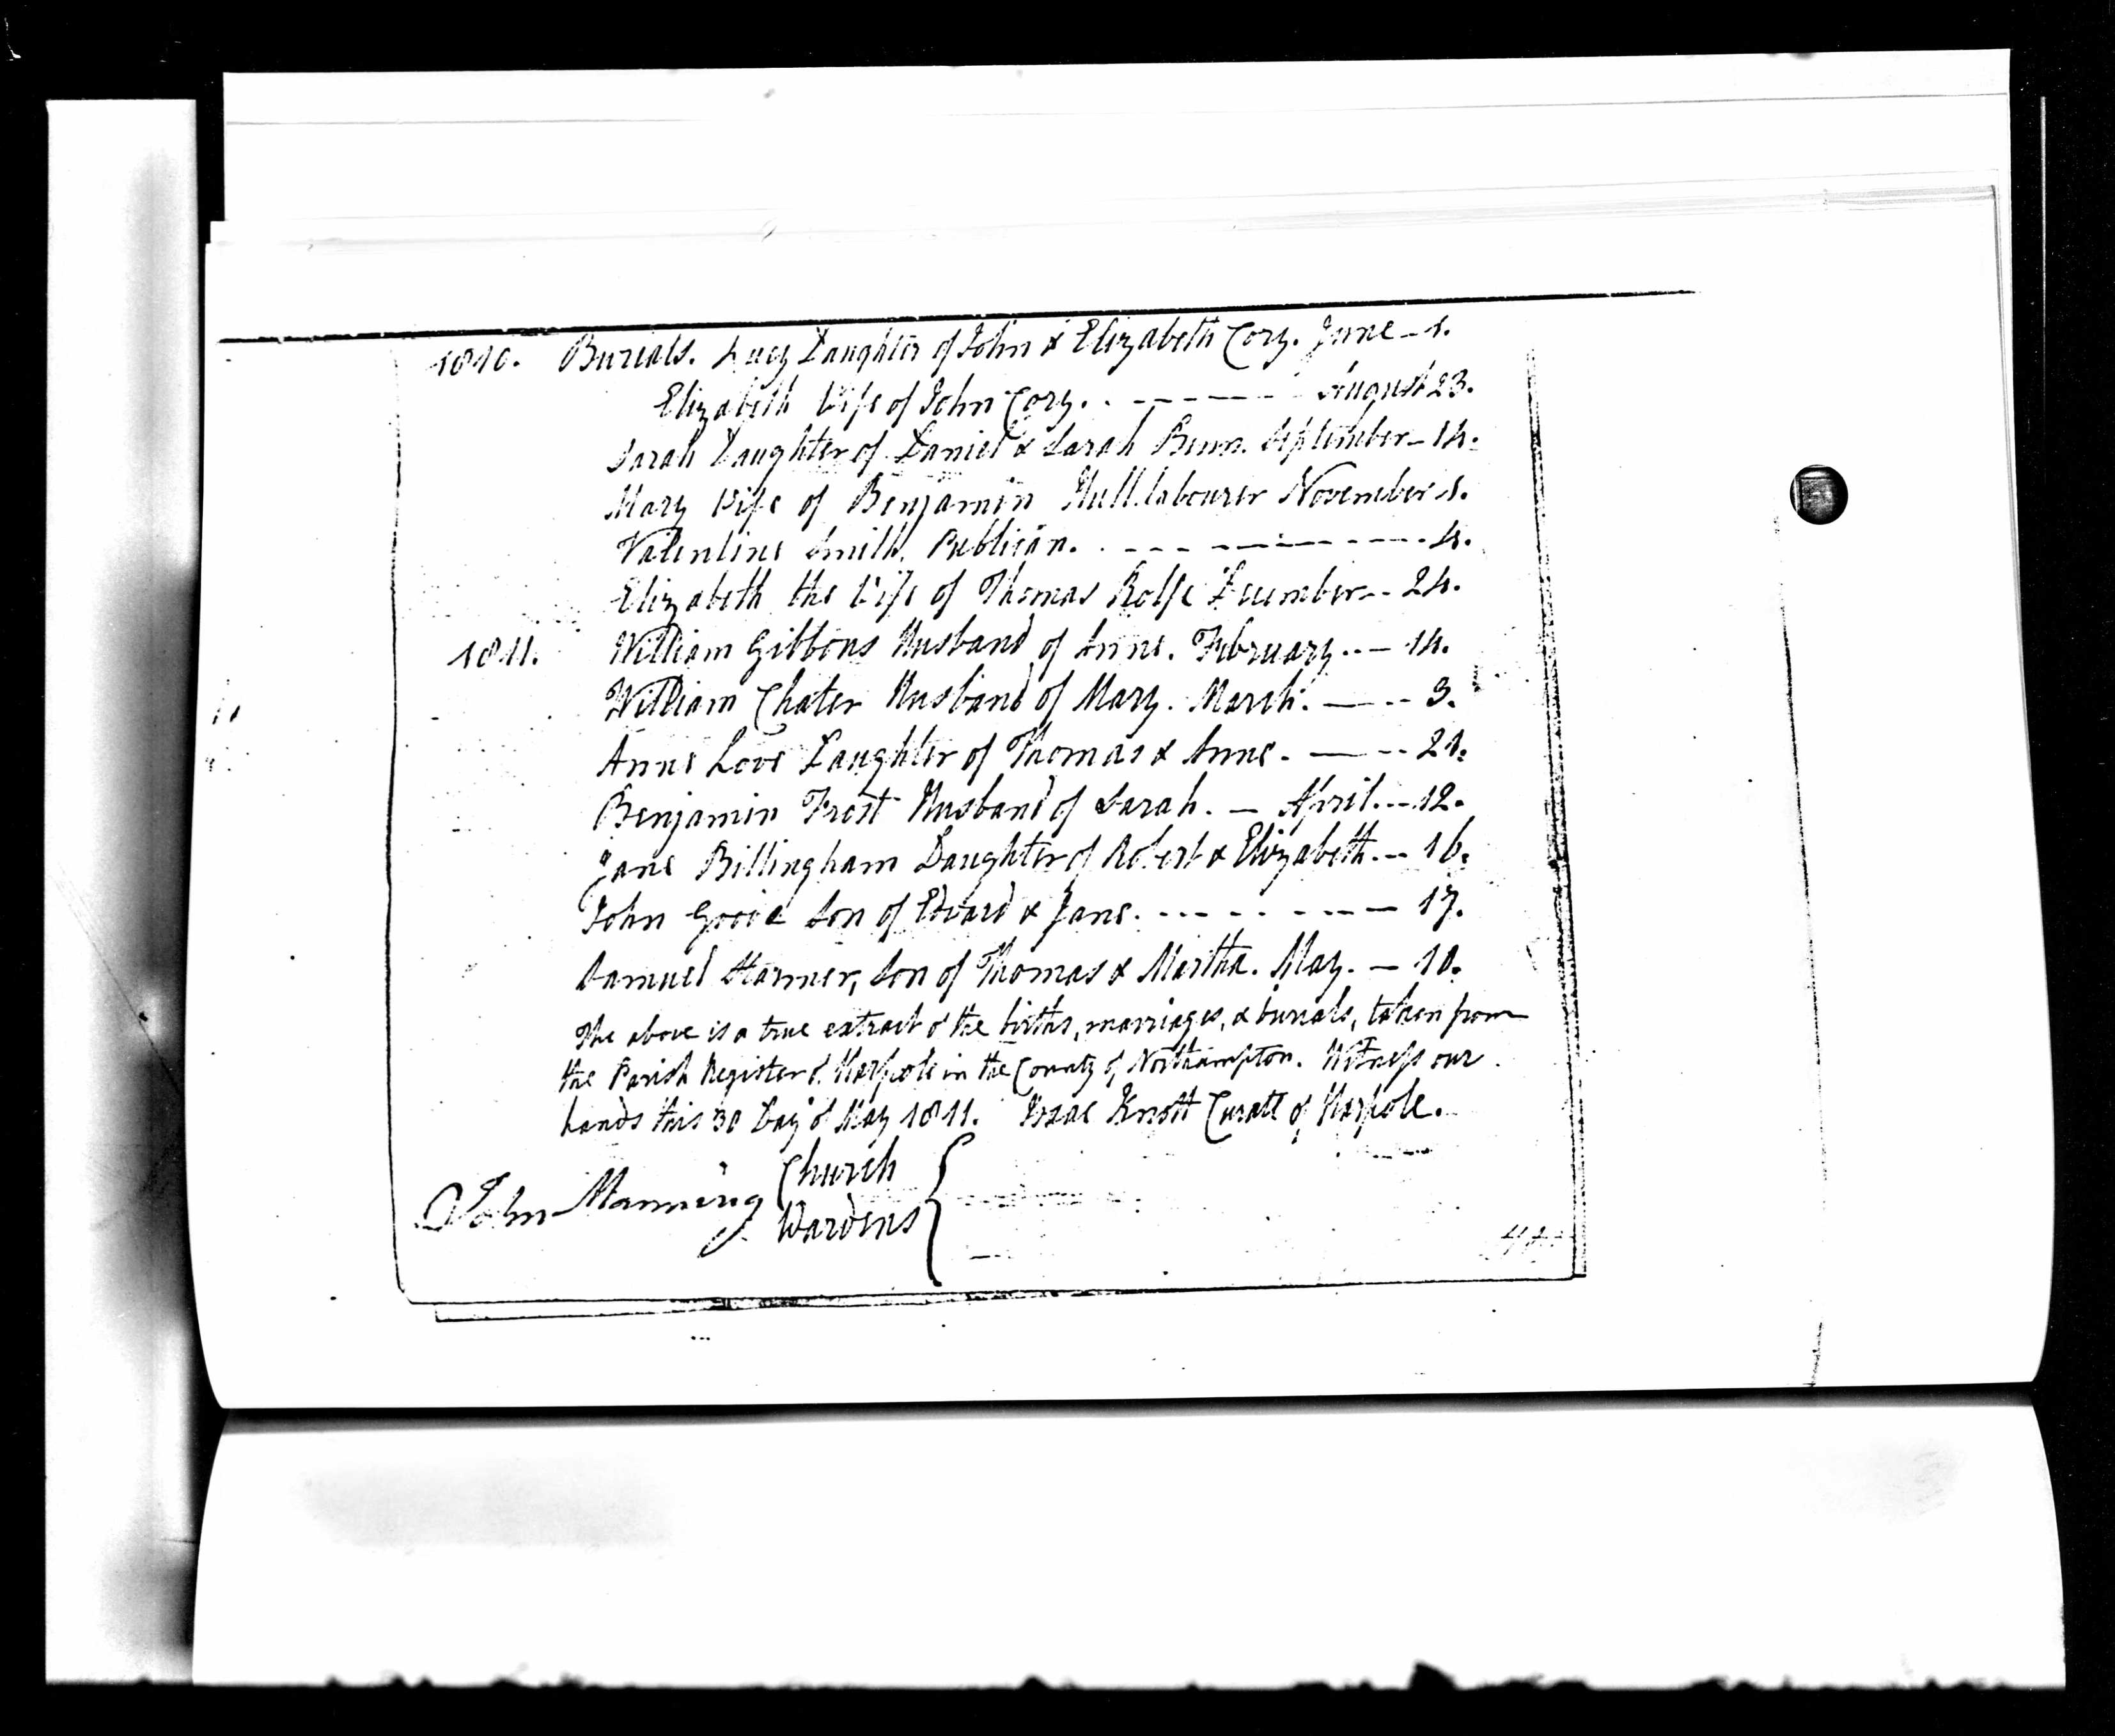 1810. Burials. Lucy Daughter of John & Elizabeth Cory. June - 1.
Elizabeth Wife of John Cory. August 23.
Sarah Daughter of Daniel & Sarah September - 14.
Mary Wife of Benjamin Hull. labourer November 1.
Valentine Smith. Publican. 4.
Elizabeth the Wife of Thomas Rolfe December - 24.
1811. William Gibbons Husband of Anne. February - 14.
William Chater Husband of Mary. March. - 3.
Anne Love Daughter of Thomas & Anne. - 21.
Benjamin Frost Husband of Sarah. - April. - 12.
Jane Billingham Daughter of Robert & Elizabeth. - 16.
John Son of Edward & Jane. - 17.
Samuel Starmer, Son of Thomas & Martha. May. - 10.
The above is a true extract of the births, marriages, & burials, taken from
the Parish Register of Harpole in the County of Northampton. Witness our
hands this 30 Day of May 1811. Isaac Knott Curate of Harpole.
John Manning Church
Wardens